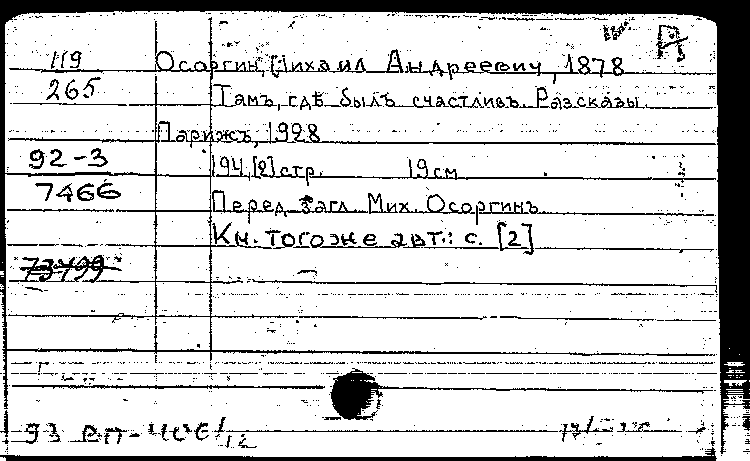 А
119
Осоргин, Михаил Андреевич, 1878
265
Тамъ, гдѣ былъ счастливъ. Разсказы.
Парижъ, 1928
92-3
194, [2] стр. 19 см
7466
Перед загл. Мих. Осоргинъ.
Кн. того же авт.: с. [2]
73499
93 ВП-406/12